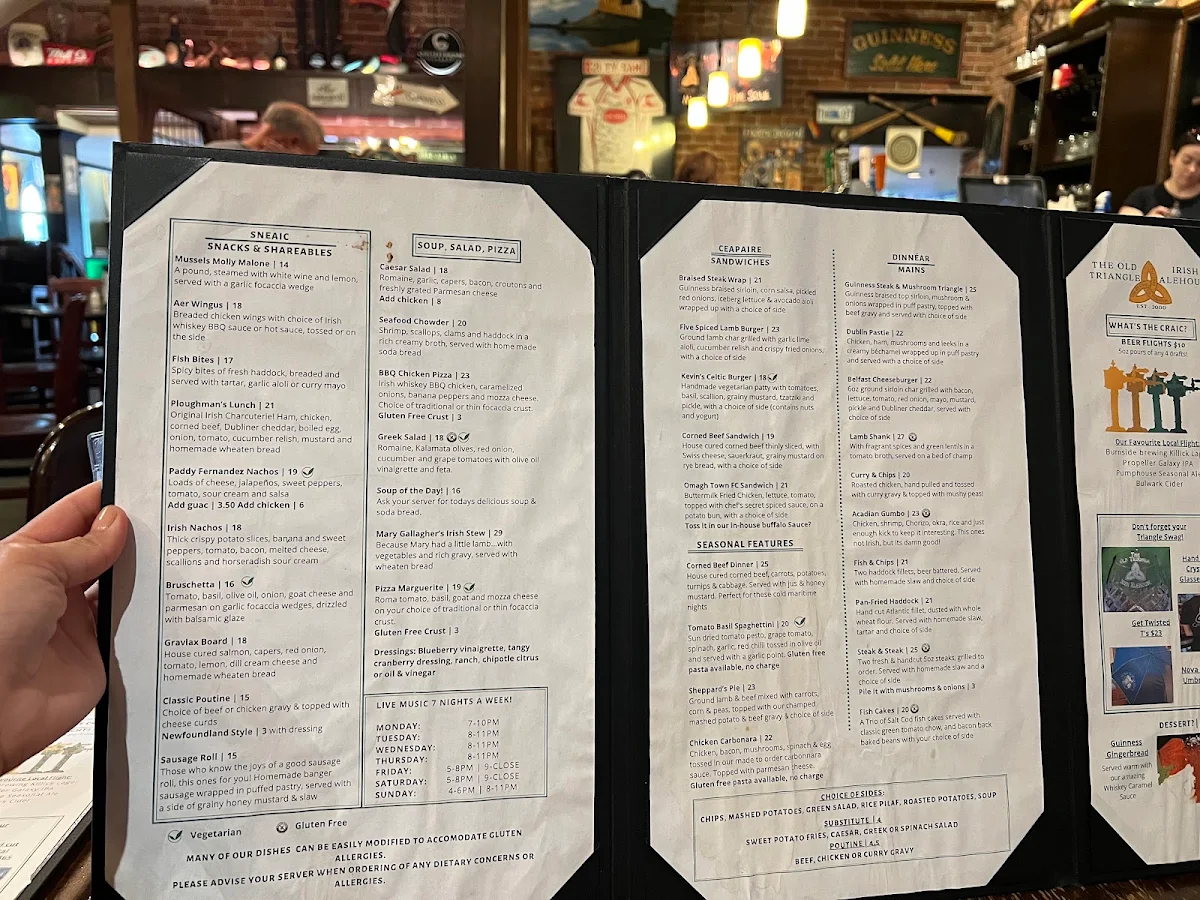 GUINNESS
Sold Here
SNEAIC
SNACKS & SHAREABLES
Mussels Molly Malone | 14
A pound, steamed with white wine and lemon,
served with a garlic focaccia wedge
Aer Wingus | 18
Breaded chicken wings with choice of Irish
whiskey BBQ sauce or hot sauce, tossed or on
the side
Fish Bites | 17
Spicy bites of fresh haddock, breaded and
served with tartar, garlic aioli or curry mayo
Ploughman's Lunch | 21
Original Irish Charcuterie! Ham, chicken,
corned beef, Dubliner cheddar, boiled egg,
onion, tomato, cucumber relish, mustard and
homemade wheaten bread
Paddy Fernandez Nachos | 19
Loads of cheese, jalapeños, sweet peppers,
tomato, sour cream and salsa
Add guac | 3.50 Add chicken | 6
Irish Nachos | 18
Thick crispy potato slices, banana and sweet
peppers, tomato, bacon, melted cheese,
scallions and horseradish sour cream
Bruschetta | 16
Tomato, basil, olive oil, onion, goat cheese and
parmesan on garlic focaccia wedges, drizzled
with balsamic glaze
Gravlax Board | 18
House cured salmon, capers, red onion,
tomato, lemon, dill cream cheese and
homemade wheaten bread
Classic Poutine | 15
Choice of beef or chicken gravy & topped with
cheese curds
Newfoundland Style | 3 with dressing
Sausage Roll | 15
Those who know the joys of a good sausage
roll, this ones for you! Homemade banger
sausage wrapped in puffed pastry, served with
a side of grainy honey mustard & slaw
Vegetarian
Gluten Free
MANY OF OUR DISHES CAN BE EASILY MODIFIED TO ACCOMODATE GLUTEN
ALLERGIES.
PLEASE ADVISE YOUR SERVER WHEN ORDERING OF ANY DIETARY CONCERNS OR
ALLERGIES.
SOUP, SALAD, PIZZA
Caesar Salad | 18
Romaine, garlic, capers, bacon, croutons and
freshly grated Parmesan cheese
Add chicken | 8
Seafood Chowder | 20
Shrimp, scallops, clams and haddock in a
rich creamy broth, served with home made
soda bread
BBQ Chicken Pizza | 23
Irish whiskey BBQ chicken, caramelized
onions, banana peppers and mozza cheese.
Choice of traditional or thin focaccia crust.
Gluten Free Crust | 3
Greek Salad | 18
Romaine, Kalamata olives, red onion,
cucumber and grape tomatoes with olive oil
vinaigrette and feta.
Soup of the Day! | 16
Ask your server for todays delicious soup &
soda bread.
Mary Gallagher's Irish Stew | 29
Because Mary had a little lamb...with
vegetables and rich gravy, served with
wheaten bread
Pizza Marguerite | 19
Roma tomato, basil, goat and mozza cheese
on your choice of traditional or thin focaccia
crust.
Gluten Free Crust | 3
Dressings: Blueberry vinaigrette, tangy
cranberry dressing, ranch, chipotle citrus
or oil & vinegar
LIVE MUSIC 7 NIGHTS A WEEK!
MONDAY: 7-10PM
TUESDAY: 8-11PM
WEDNESDAY: 8-11PM
THURSDAY: 8-11PM
FRIDAY: 5-8PM | 9-CLOSE
SATURDAY: 5-8PM | 9-CLOSE
SUNDAY: 4-6PM | 8-11PM
CEAPAIRE
SANDWICHES
Braised Steak Wrap | 21
Guinness braised sirloin, corn salsa, pickled
red onions, iceberg lettuce & avocado aioli
wrapped up with a choice of side
Five Spiced Lamb Burger | 23
Ground lamb char grilled with garlic lime
aioli, cucumber relish and crispy fried onions,
with a choice of side
Kevin's Celtic Burger | 18
Handmade vegetarian patty with tomatoes,
basil, scallion, grainy mustard, tzatziki and
pickle, with a choice of side (contains nuts
and yogurt)
Corned Beef Sandwich | 19
House cured corned beef thinly sliced, with
Swiss cheese, sauerkraut, grainy mustard on
rye bread, with a choice of side
Omagh Town FC Sandwich | 21
Buttermilk Fried Chicken, lettuce, tomato,
topped with chef's secret spiced sauce, on a
potato bun, with a choice of side
Toss it in our in-house buffalo Sauce?
SEASONAL FEATURES
Corned Beef Dinner | 25
House cured corned beef, carrots, potatoes,
turnips & cabbage. Served with jus & honey
mustard. Perfect for those cold maritime
nights
Tomato Basil Spaghettini | 20
Sun dried tomato pesto, grape tomato,
spinach, garlic, red chili tossed in olive oil
and served with a garlic point. Gluten free
pasta available, no charge
Sheppard's Pie | 23
Ground lamb & beef mixed with carrots,
corn & peas, topped with our champed
mashed potato & beef gravy & choice of side
Chicken Carbonara | 22
Chicken, bacon, mushrooms, spinach & egg
tossed in our made to order carbonara
sauce. Topped with parmesan cheese.
Gluten free pasta available, no charge
DINNÉAR
MAINS
Guinness Steak & Mushroom Triangle | 25
Guinness braised top sirloin, mushroom &
onions wrapped in puff pastry, topped with
beef gravy and served with choice of side
Dublin Pastie | 22
Chicken, ham, mushrooms and leeks in a
creamy béchamel wrapped up in puff pastry
and served with a choice of side
Belfast Cheeseburger | 22
6oz ground sirloin char grilled with bacon,
lettuce, tomato, red onion, mayo, mustard,
pickle and Dubliner cheddar, served with
choice of side
Lamb Shank | 27
With fragrant spices and green lentils in a
tomato broth, served on a bed of champ
Curry & Chips | 20
Roasted chicken, hand pulled and tossed
with curry gravy & topped with mushy peas!
Acadian Gumbo | 23
Chicken, shrimp, Chorizo, okra, rice and just
enough kick to keep it interesting. This ones
not Irish, but its damn good!
Fish & Chips | 21
Two haddock fillets, beer battered. Served
with homemade slaw and choice of side
Pan-Fried Haddock | 21
Hand cut Atlantic fillet, dusted with whole
wheat flour. Served with homemade slaw,
tartar and choice of side
Steak & Steak | 25
Two fresh & handcut 5oz steaks, grilled to
order. Served with homemade slaw and a
choice of side
Pile it with mushrooms & onions | 3
Fish Cakes | 20
A Trio of Salt Cod fish cakes served with
classic green tomato chow, and bacon back
baked beans with your choice of side
CHOICE OF SIDES:
CHIPS, MASHED POTATOES, GREEN SALAD, RICE PILAF, ROASTED POTATOES, SOUP
SUBSTITUTE | 4
SWEET POTATO FRIES, CAESAR, GREEK OR SPINACH SALAD
POUTINE | 4.5
BEEF, CHICKEN OR CURRY GRAVY
THE OLD IRISH
TRIANGLE ALEHOU
EST. 2000
WHAT'S THE CRAIC?
BEER FLIGHTS $10
5oz pours of any 4 drafts!
Our Favourite Local Flight:
Burnside brewing Killick La
Propeller Galaxy IPA
Pumphouse Seasonal Ale
Bulwark Cider
Don't forget your
Triangle Swag!
Hand
Crys
Glasse
Get Twisted
T's $23
Nova
Umbr
DESSERT?
Guinness
Gingerbread
Served warm with
our amazing
Whiskey Caramel
Sauce